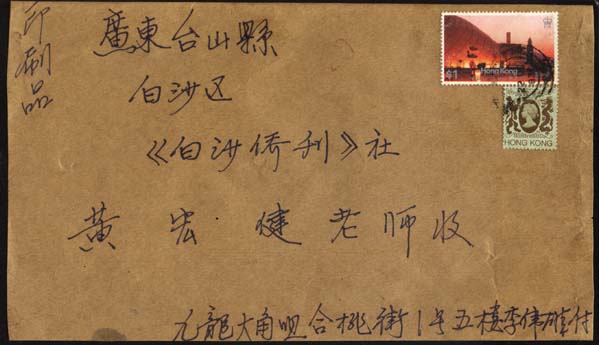 印刷品
廣東台山縣
白沙区
《白沙侨刊》社
黄宏健老师收
九龍大角咀合桃街1号五楼李伟雄付
$1 Hong Kong
HONG KONG